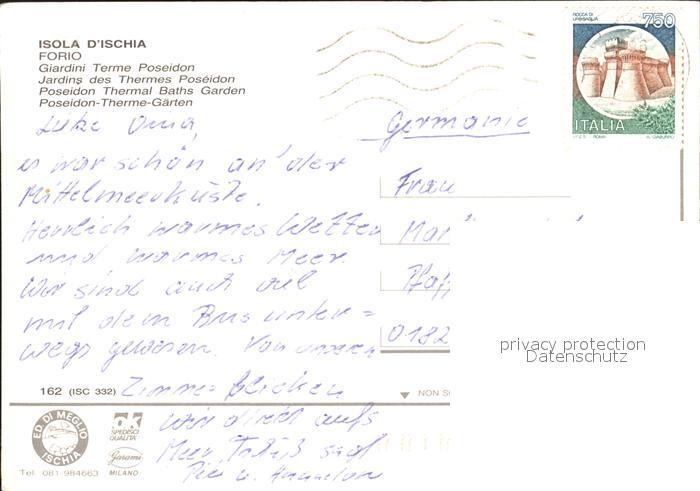 ISOLA D'ISCHIA
FORIO
Giardini Terme Poseidon
Jardins des Thermes Poséidon
Poseidon Thermal Baths Garden
Poseidon-Therme-Gärten
ROCCA DI URBISAGLIA
750
ITALIA
Liebe Oma,
es war schön an der
Mittelmeerküste.
Herrlich warmes Wetter
und warmes Meer.
Wir sind auch viel
mit dem Bus unter=
wegs gewesen. Von unserem
Zimmer blicken
wir direkt aufs
Meer.
Germania
Frau
Mar
Pfaf
0182
privacy protection
Datenschutz
162 (ISC 332)
NON S
ED. DI MEGLIO
ISCHIA
Tel. 081-984663
OK
SPEDISCI
QUALITA'
Garami
MILANO